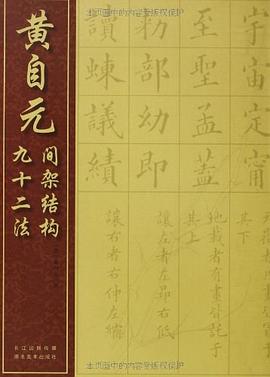 黄自元
间架结构
九十二法
长江出版传媒
湖北美术出版社
本页图中的内容受版权保护
宇宙定甯
至聖孟蓋
部幼即
讀竦議績
其下
地載者有畫皆託于
其上
讓左者左昂右低
讓右者右伸左縮
本页图中的内容受版权保护